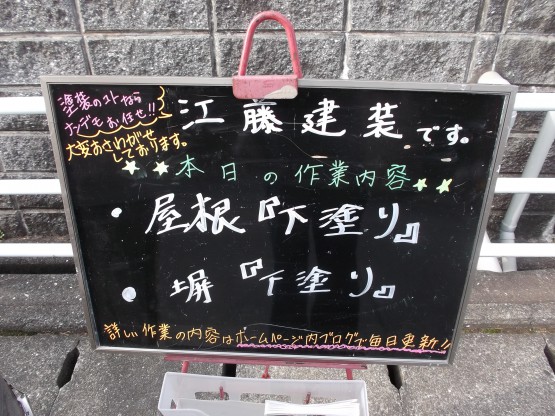 塗装のコトなら
ナンデモお任せ!!
江藤建装です。
大変おさわがせ
しております。
本日の作業内容
・屋根『下塗り』
・塀『下塗り』
詳しい作業の内容はホームページ内ブログで毎日更新!!